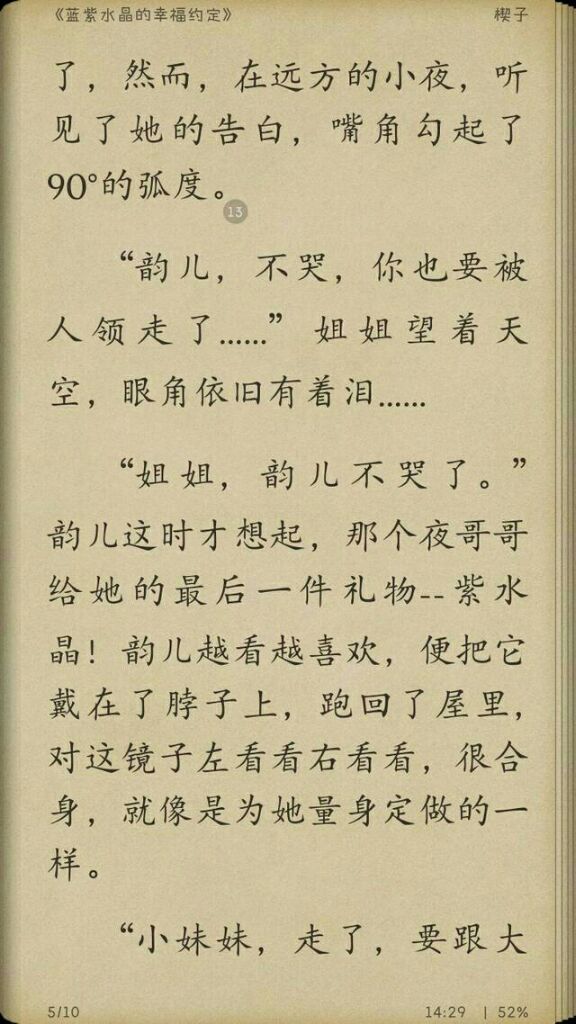 《蓝紫水晶的幸福约定》 楔子
了，然而，在远方的小夜，听
见了她的告白，嘴角勾起了
90°的弧度。
13
“韵儿，不哭，你也要被
人领走了......”姐姐望着天
空，眼角依旧有着泪......
“姐姐，韵儿不哭了。”
韵儿这时才想起，那个夜哥哥
给她的最后一件礼物--紫水
晶！韵儿越看越喜欢，便把它
戴在了脖子上，跑回了屋里，
对这镜子左看看右看看，很合
身，就像是为她量身定做的一
样。
“小妹妹，走了，要跟大
5/10 14:29 | 52%